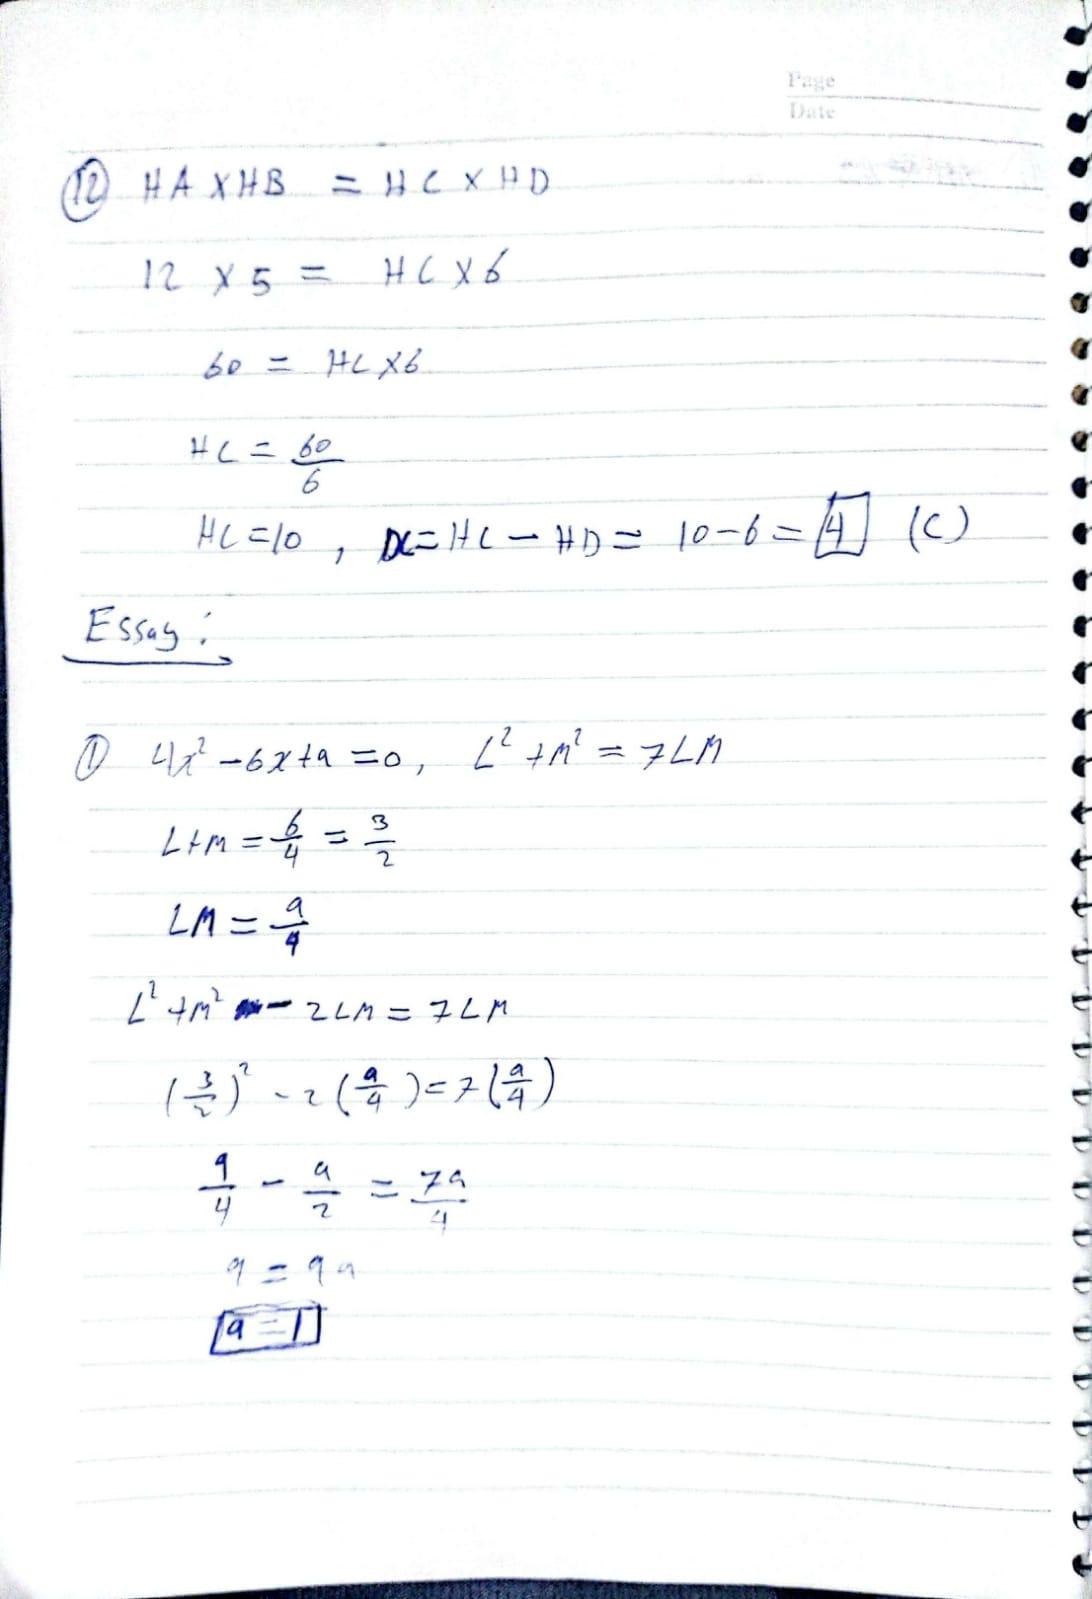 Page
Date
(12) HA X HB = HC X HD
12 X 5 = HC X 6
60 = HC X 6
HC = 60/6
HC = 10 , DC = HC - HD = 10 - 6 = 4 (C)
Essay :
(1) 4x² - 6x + a = 0 , L² + M² = 7LM
L + M = 6/4 = 3/2
LM = a/4
L² + M² - 2LM = 7LM
(3/2)² - 2(a/4) = 7(a/4)
9/4 - a/2 = 7a/4
9 = 9a
a = 1